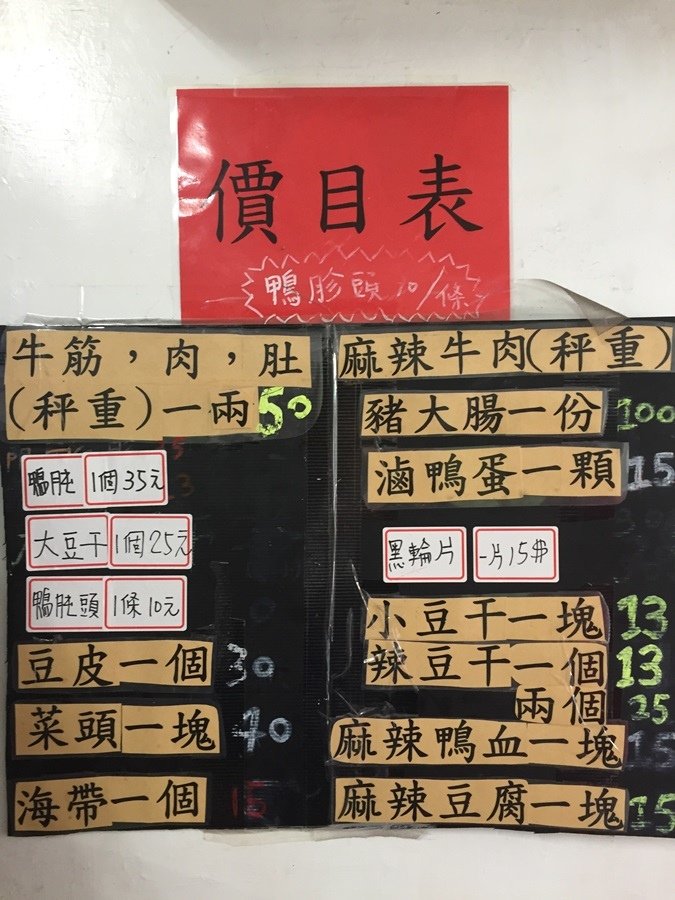 價目表
鴨胗頭10/條
牛筋，肉，肚
(秤重)一兩50
鴨肫 1個35元
大豆干 1個25元
鴨肫頭 1條10元
豆皮一個 30
菜頭一塊 40
海帶一個 15
麻辣牛肉(秤重)
豬大腸一份 100
滷鴨蛋一顆 15
黑輪片 一片15$
小豆干一塊 13
辣豆干一個 13
兩個 25
麻辣鴨血一塊 15
麻辣豆腐一塊 15